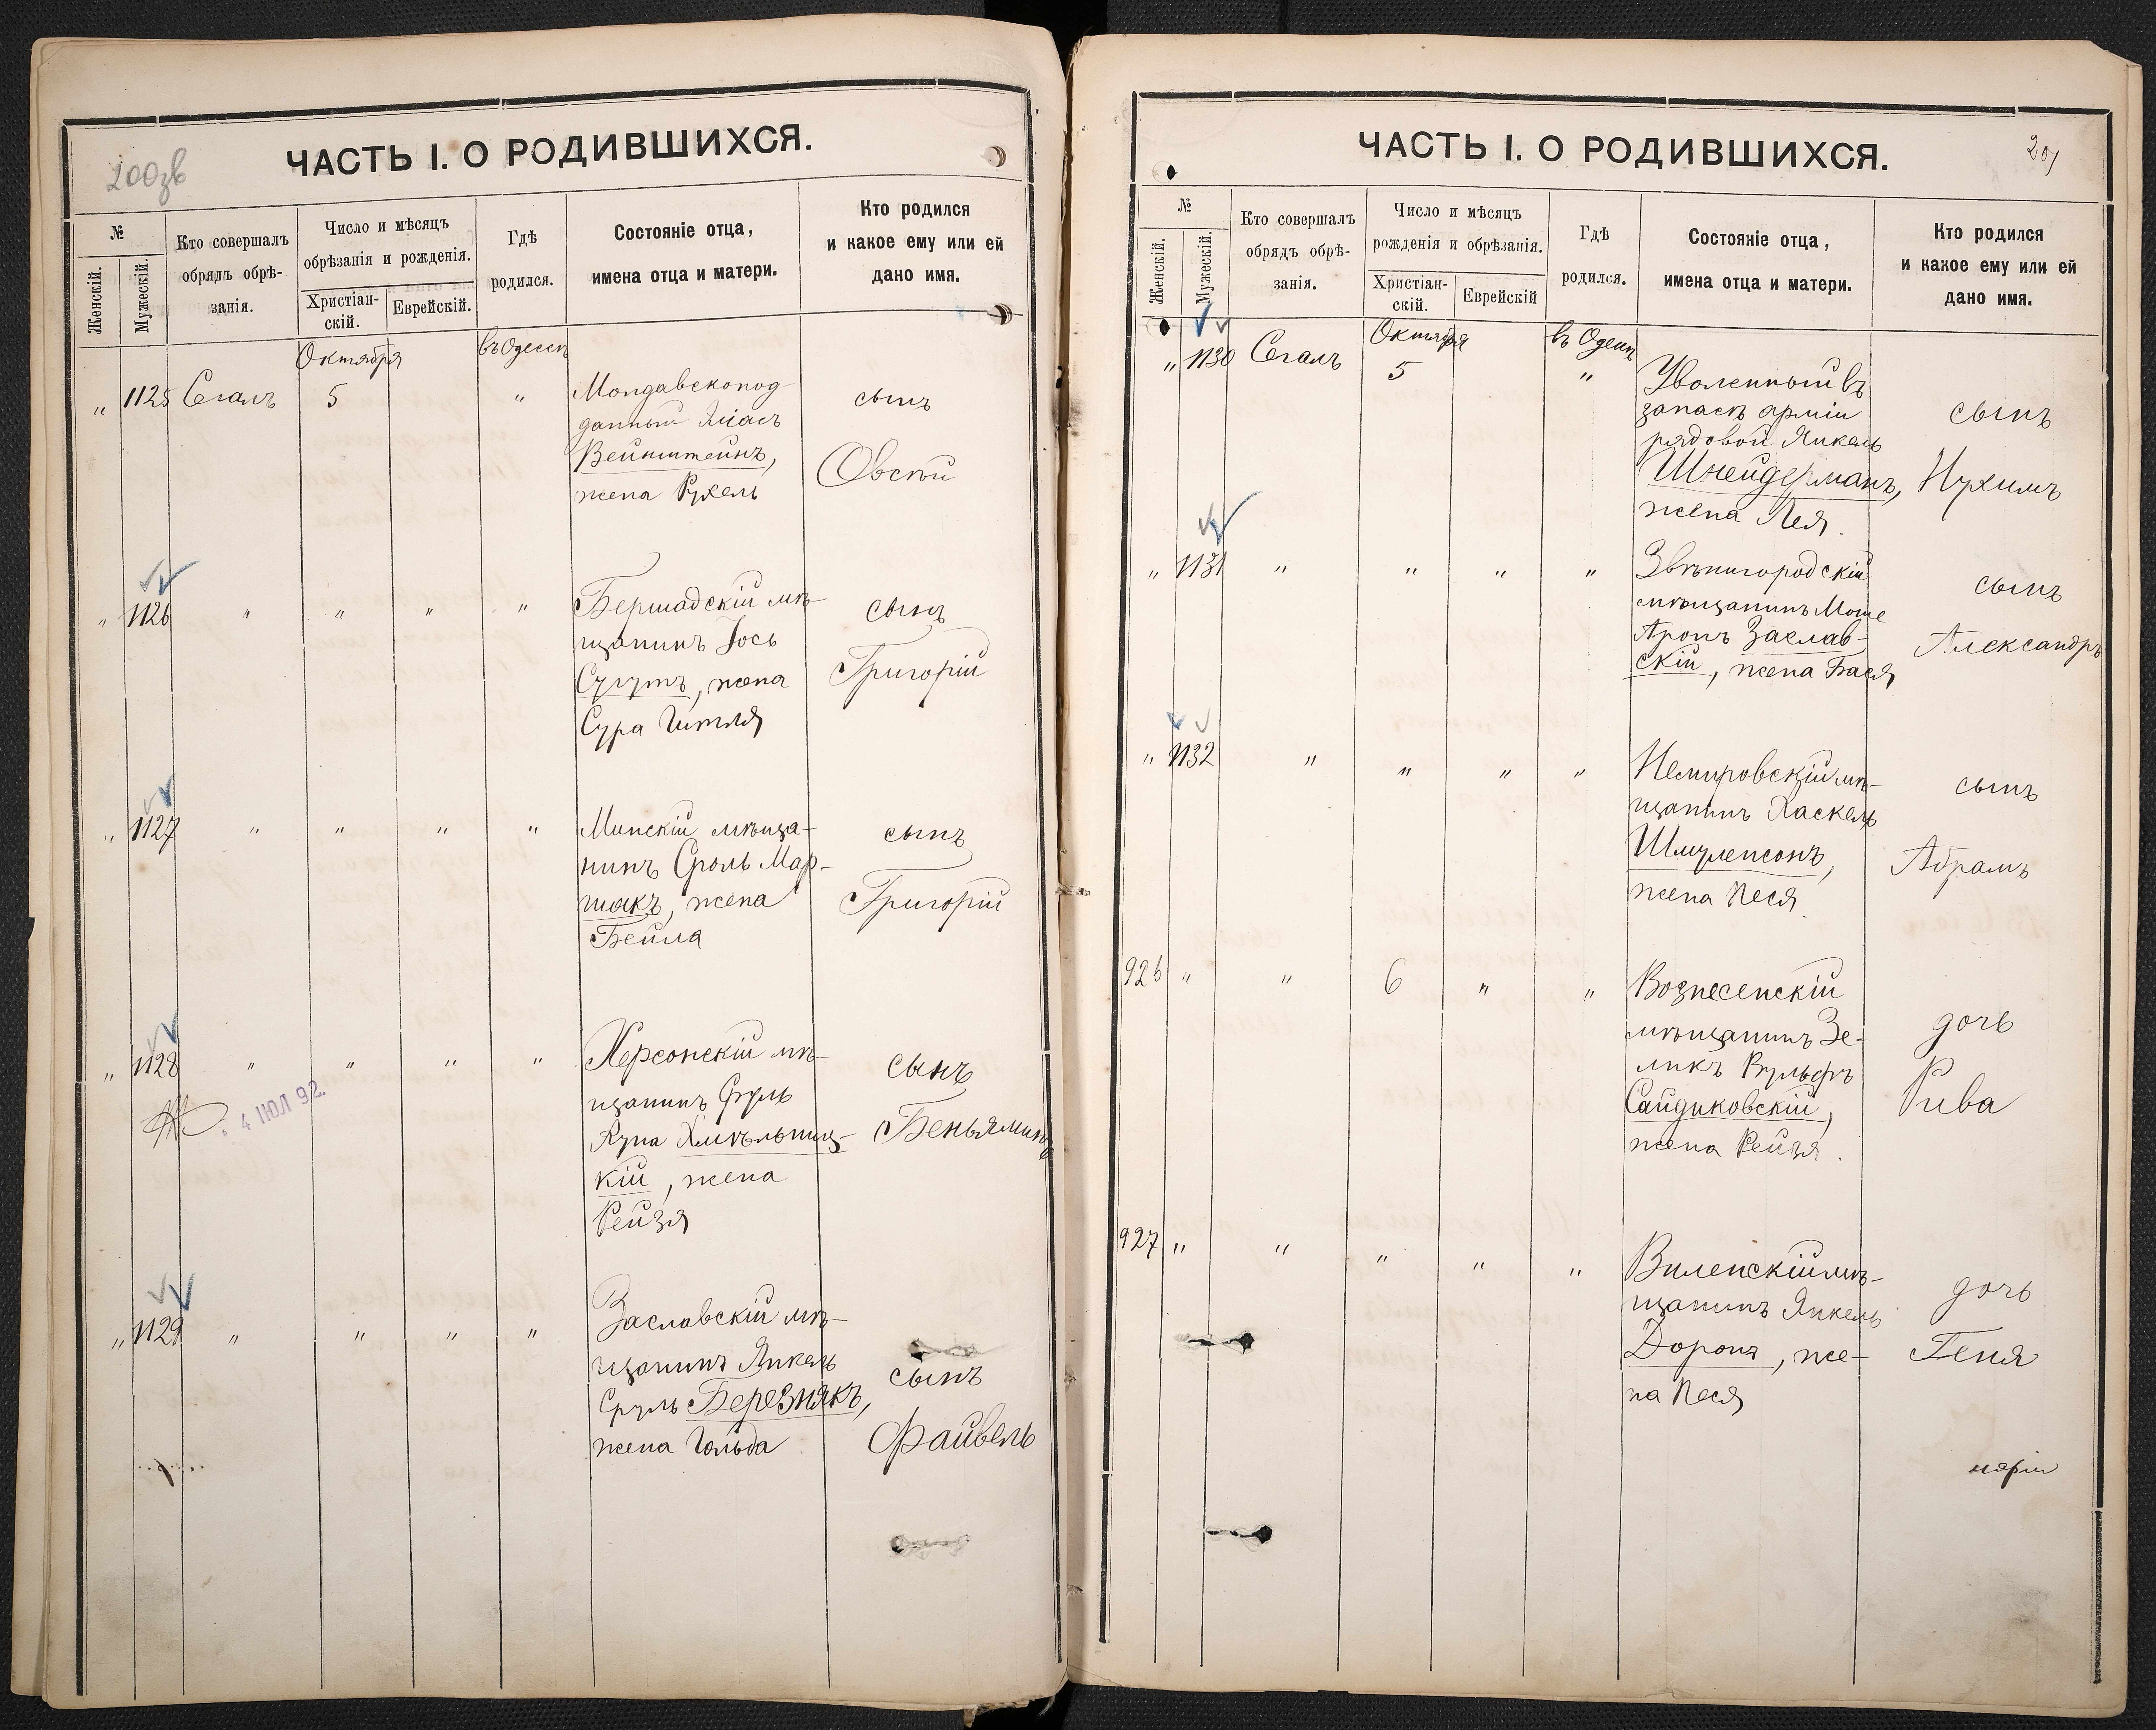 200зв
ЧАСТЬ I. О РОДИВШИХСЯ.
№
Женскій.
Мужескій.
Кто совершалъ
обрядъ обрѣ-
занія.
Число и мѣсяцъ
обрѣзанія и рожденія.
Христіан-
скій.
Еврейскій.
Гдѣ
родился.
Состояніе отца,
имена отца и матери.
Кто родился
и какое ему или ей
дано имя.
Октября
въ Одессѣ
" 1125 Сегалъ 5 "
Молдавскопод-
данный
Вейнштейнъ,
жена Рухель
сынъ
Овсѣй
" 1126 " " " "
Бершадскій мѣ-
щанинъ Іось
Сугутъ, жена
Сура Гитля
сынъ
Григорій
" 1127 " " " "
Минскій мѣща-
нинъ Сроль Мар-
шакъ, жена
Бейла
сынъ
Григорій
" 1128 " " " "
4 ІЮЛ 92.
Херсонскій мѣ-
щанинъ Сруль
Хмѣльниц-
кій, жена
Рейзя
сынъ
Беньяминъ
" 1129 " " " "
Заславскій мѣ-
щанинъ Янкель
Сруль Березнякъ,
жена Гольда
сынъ
Файвель
201
ЧАСТЬ I. О РОДИВШИХСЯ.
№
Женскій.
Мужескій.
Кто совершалъ
обрядъ обрѣ-
занія.
Число и мѣсяцъ
рожденія и обрѣзанія.
Христіан-
скій.
Еврейскій
Гдѣ
родился.
Состояніе отца,
имена отца и матери.
Кто родился
и какое ему или ей
дано имя.
Октября
въ Одессѣ
" 1130 Сегалъ 5 "
Уволенный въ
запасъ арміи
рядовой Янкель
Шнейдерманъ,
жена Лея.
сынъ
Нухимъ
" 1131 " " " "
Звѣнигородскій
мѣщанинъ Моше
Аронъ Заслав-
скій, жена Бася
сынъ
Александръ
" 1132 " " " "
Немировскій мѣ-
щанинъ Хаскель
Шмуленсонъ,
жена Песя.
сынъ
Абрамъ
926 " " 6 " "
Вознесенскій
мѣщанинъ Зе-
ликъ Вульфъ
Сандиковскій,
жена Рейзя.
дочь
Рива
927 " " " " "
Виленскій мѣ-
щанинъ Янкель
Доронъ, же-
на Песя
дочь
Геня